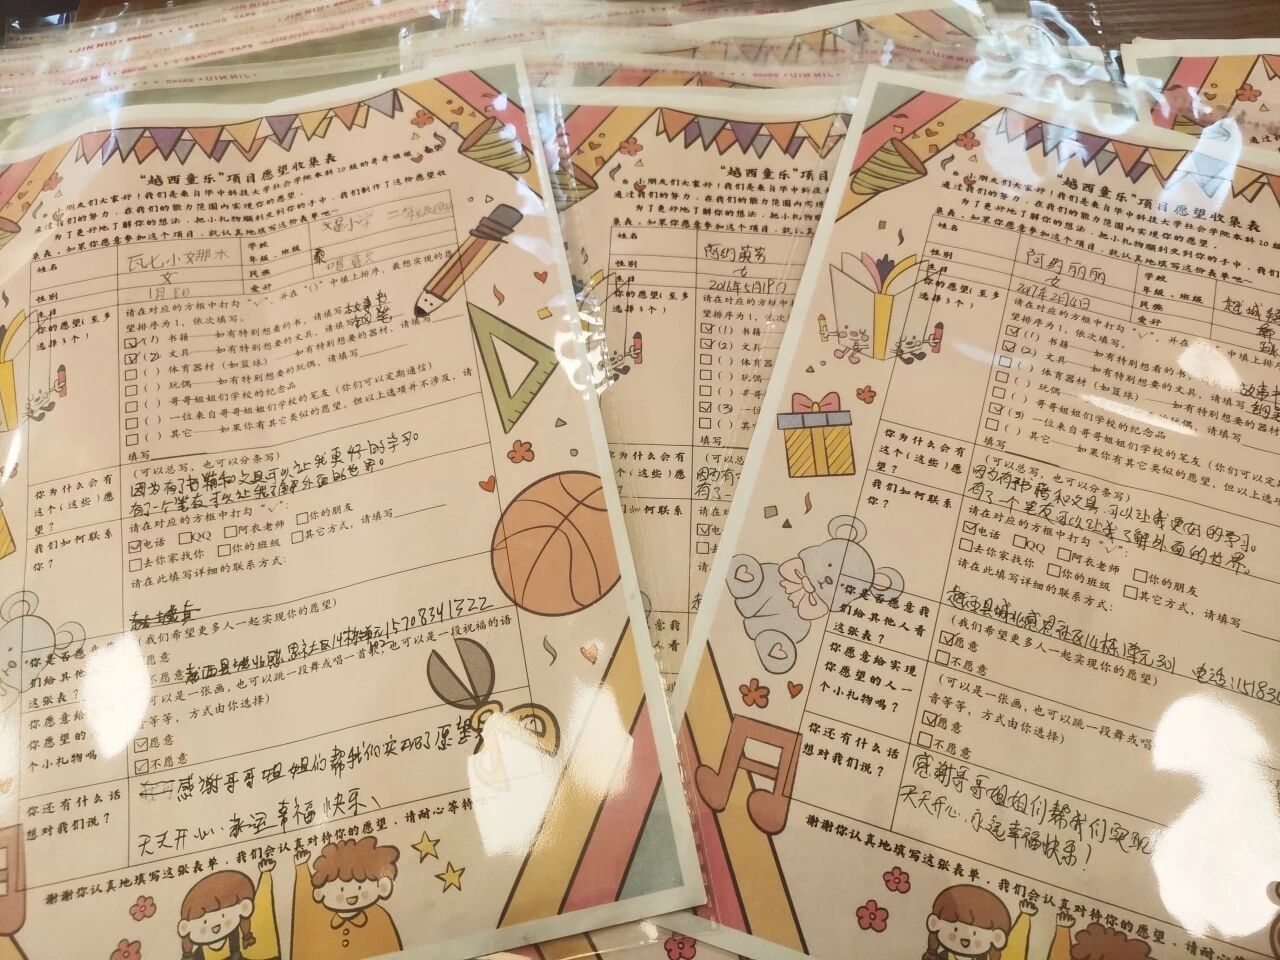 JIN NIU
BRAND
SEALING TAPE
“越西童乐”项目愿望收集表
小朋友们大家好！我们是来自华中科技大学社会学院本科20级的哥哥姐姐，希望
通过我们的努力，在我们的能力范围内实现你的愿望。
为了更好地了解你的想法，把小礼物顺利交到你的手中，我们制作了这份愿望收
集表。如果你愿意参加这个项目，就认真地填写这份表单吧～
姓名
学校
年级、班级
性别 女
民族
生日 1月8日
爱好
你的愿望（至多选择3个）
请在对应的方框中打勾“√”，并在“()”中填上排序，最想实现的愿
望排序为1，依次填写。
(1) 书籍——如有特别想看的书，请填写故事书
(2) 文具——如有特别想要的文具，请填写钢笔
( ) 体育器材（如篮球）——如有特别想要的器材，请填写
( ) 玩偶——如有特别想要的玩偶，请填写
( ) 哥哥姐姐们学校的纪念品
( ) 一位来自哥哥姐姐们学校的笔友（你们可以定期通信）
( ) 其它——如果你有其它类似的愿望，但以上选项并不涉及，请
填写
你为什么会有这个（这些）愿望？
（可以总写，也可以分条写）
因为有了书籍和文具可以让我更好的学习。
有了一个笔友可以让我了解外面的世界。
我们如何联系你？
请在对应的方框中打勾“√”：
电话 QQ 阿衣老师 你的朋友
去你家找你 你的班级 其它方式，请填写
请在此填写详细的联系方式：
15708341322
你是否愿意我们给其他人看这张表？
（我们希望更多人一起实现你的愿望）
愿意
不愿意
你愿意给实现你愿望的人一个小礼物吗？
（可以是一张画，也可以跳一段舞或唱一首歌，也可以是一段祝福的语
音等等，方式由你选择）
愿意
不愿意
你还有什么话想对我们说？
感谢哥哥姐姐们帮我们实现了愿望
天天开心 永远幸福快乐
谢谢你认真地填写这张表单，我们会认真对待你的愿望，请耐心等待
姓名
性别 女
生日 2016年5月19日
你的愿望（至多选择3个）
请在对应的方框中打
望排序为1，依次填
(1) 书籍
(2) 文具
( ) 体育器
( ) 玩偶
( ) 哥哥
(3) 一位
( ) 其它
填写
你为什么会有这个（这些）愿望？
（可以总写，也
因为有
有了一
我们如何联系你？
“越西童乐”项目愿望收集表
小朋友们大家好！我们是来自华中科技大学社会学院本科20
通过我们的努力，在我们的能力范围内实现你的愿望。
为了更好地了解你的想法，把小礼物顺利交到你的手中，我们
集表。如果你愿意参加这个项目，就认真地填写这份表单吧～
姓名 阿约丽丽
学校
年级、班级
性别 女
民族
生日 2017年2月4日
爱好
你的愿望（至多选择3个）
请在对应的方框中打勾“√”，并在“()”中填上排序
望排序为1，依次填写。
(1) 书籍——如有特别想看的书，请填写故事书
(2) 文具——如有特别想要的文具，请填写钢笔
( ) 体育器材（如篮球）——如有特别想要的器材
( ) 玩偶——如有特别想要的玩偶，请填写
( ) 哥哥姐姐们学校的纪念品
(3) 一位来自哥哥姐姐们学校的笔友（你们可以定
( ) 其它——如果你有其它类似的愿望，但以上选
填写
你为什么会有这个（这些）愿望？
（可以总写，也可以分条写）
因为有书籍和文具，可以让我更好的学习。
有了一个笔友可以让我了解外面的世界。
我们如何联系你？
请在对应的方框中打勾“√”：
电话 QQ 阿衣老师 你的朋友
去你家找你 你的班级 其它方式，请填写
请在此填写详细的联系方式：
越西县城北感恩社区14栋1单元301 电话:15183
你是否愿意我们给其他人看这张表？
（我们希望更多人一起实现你的愿望）
愿意
不愿意
你愿意给实现你愿望的人一个小礼物吗？
（可以是一张画，也可以跳一段舞或唱
音等等，方式由你选择）
愿意
不愿意
你还有什么话想对我们说？
感谢哥哥姐姐们帮我们实现
天天开心，永远幸福快乐！
谢谢你认真地填写这张表单，我们会认真对待你的愿望，请耐心等